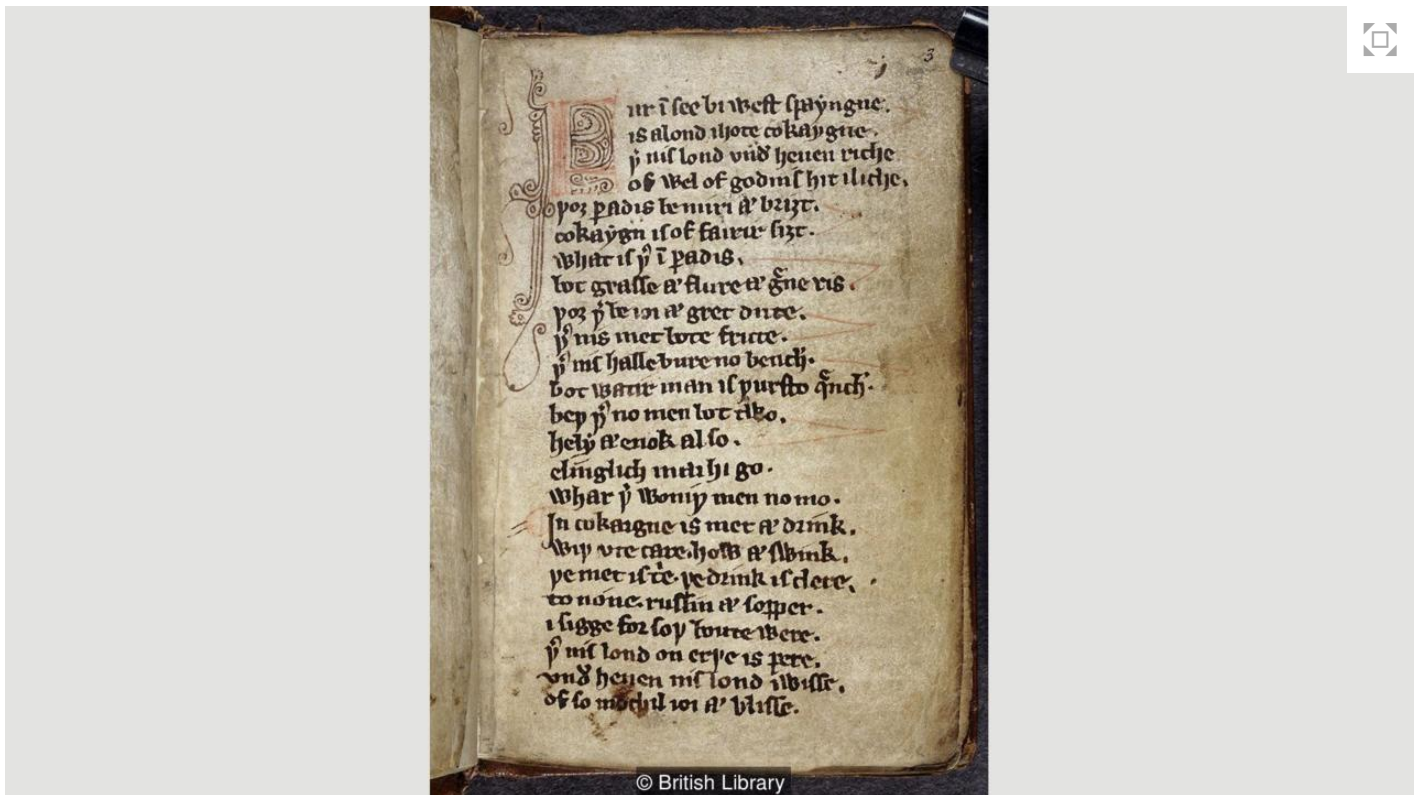 3
Fur ī see bi west spaẏngne.
is a lond ihote cokaygne.
þ̉ nis lond vnd̉ heuen riche
of wel of godnis hit iliche.
þoȝ ꝑadis be miri ⁊ briȝt.
cokaẏgn is of fairir siȝt.
what is þ̉ ī ꝑadis.
bot grasse ⁊ flure ⁊ gͣne ris.
þoȝ þ̉ be ioi ⁊ gret dute.
þ̉ nis met bote frute.
þ̉ nis halle bure no bench̉.
bot watir man is þursto qͣnch̉.
beþ þ̉ no men bot two.
helẏ ⁊ enok al so.
elinglich mai hi go.
whar þ̉ woniþ men no mo.
In cokaigne is met ⁊ drink.
wiþ vte care. how ⁊ swink.
þe met is t̉e. þe drink is clere.
to none. russin ⁊ sopper.
i sigge for soþ boute were.
þ̉ nis lond on erþe is pere.
vnd̉ heuen nis lond iwisse.
of so mochil ioi ⁊ blisse.
© British Library